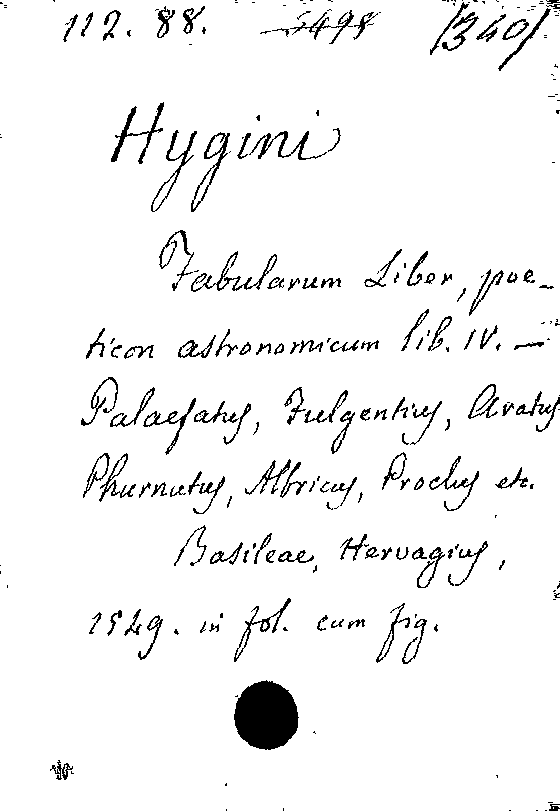 112. 88. 5498 /340/
Hygini
Fabularum Liber, poe-
ticon astronomicum lib. IV. —
Palaefatus, Fulgentius, Aratus
Phurnutus, Albricus, Proclus etc.
Basileae, Hervagius,
1549. in fol. cum fig.